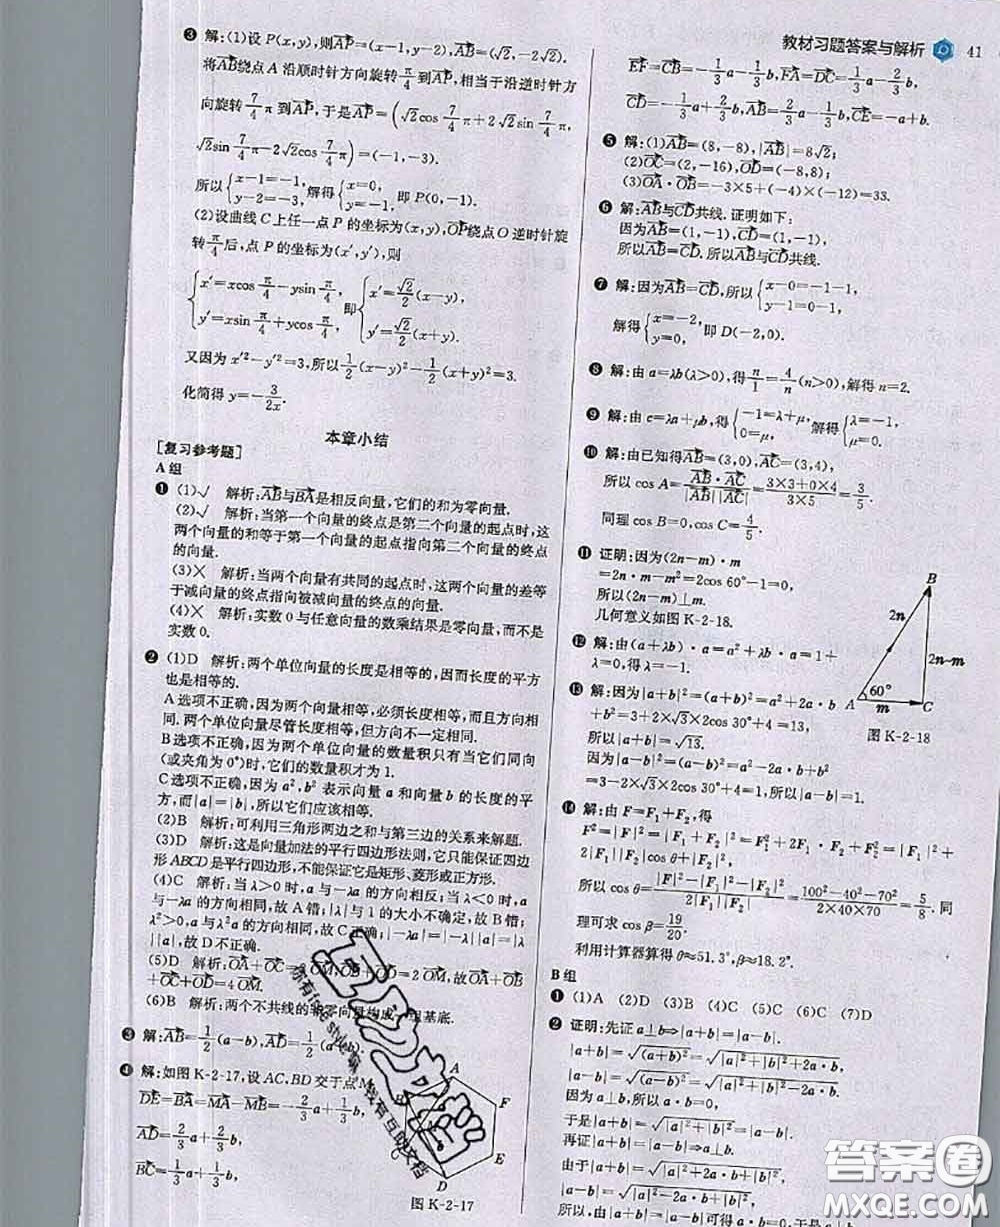 教材习题答案与解析 41
❸ 解:(1)设 P(x,y),则AP=(x-1,y-2),AB=(√2,-2√2).
将AB绕点 A 沿顺时针方向旋转π/4到AP,相当于沿逆时针方
向旋转7/4π到AP,于是AP=(√2cos7/4π+2√2sin7/4π,
√2sin7/4π-2√2cos7/4π)=(-1,-3).
所以{x-1=-1, y-2=-3,解得{x=0, y=-1, 即 P(0,-1).
(2)设曲线 C 上任一点 P 的坐标为(x,y),OP绕点 O 逆时针旋
转π/4后,点 P 的坐标为(x′,y′),则
{x′=xcosπ/4-ysinπ/4, y′=xsinπ/4+ycosπ/4, 即{x′=√2/2(x-y), y′=√2/2(x+y).
又因为 x′²-y′²=3,所以1/2(x-y)²-1/2(x+y)²=3.
化简得 y=-3/2x.
本章小结
[复习参考题]
A 组
❶ (1)√ 解析:AB与BA是相反向量,它们的和为零向量.
(2)√ 解析:当第一个向量的终点是第二个向量的起点时,这
两个向量的和等于第一个向量的起点指向第二个向量的终点
的向量.
(3)× 解析:当两个向量有共同的起点时,这两个向量的差等
于减向量的终点指向被减向量的终点的向量.
(4)× 解析:实数 0 与任意向量的数乘结果是零向量,而不是
实数 0.
❷ (1)D 解析:两个单位向量的长度是相等的,因而长度的平方
也是相等的.
A 选项不正确,因为两个向量相等,必须长度相等,而且方向相
同.两个单位向量尽管长度相等,但方向不一定相同.
B 选项不正确,因为两个单位向量的数量积只有当它们同向
(或夹角为 0°)时,它们的数量积才为 1.
C 选项不正确,因为 a²,b² 表示向量 a 和向量 b 的长度的平
方,而|a|=|b|,所以它们应该相等.
(2)B 解析:可利用三角形两边之和与第三边的关系来解题.
(3)D 解析:这是向量加法的平行四边形法则,它只能保证四边
形 ABCD 是平行四边形,不能保证它是矩形、菱形或正方形.
(4)C 解析:当 λ>0 时,a 与-λa 的方向相反,当 λ<0 时,a
与-λa 的方向相同,故 A 错;|λ|与 1 的大小不确定,故 B 错;
λ²>0,a 与 λ²a 的方向相同,故 C 正确;|-λa|=|-λ||a|=|λ
||a|,故 D 不正确.
(5)D 解析:OA+OC= OM,OB+OD=2OM,故OA+OB
+OC+OD=4OM.
(6)B 解析:两个不共线的 零向量构成 组基底.
❸ 解:AB=1/2(a-b),AD=1/2(a+b).
❹ 解:如图 K-2-17,设 AC,BD 交于点 M.
DE=BA=MA-MB=-2/3a+1/3b,
AD=2/3a+2/3b,
BC=1/3a+1/3b,
A
F
E
D
C
B
图 K-2-17
EF=CB=-1/3a-1/3b,FA=DC=1/3a-2/3b,
CD=-1/3a+2/3b,AB=2/3a-1/3b,CE=-a+b.
❺ 解:(1)AB=(8,-8),|AB|=8√2;
(2)OC=(2,-16),OD=(-8,8);
(3)OA·OB=-3×5+(-4)×(-12)=33.
❻ 解:AB与CD共线. 证明如下:
因为AB=(1,-1),CD=(1,-1),
所以AB=CD.所以AB与CD共线.
❼ 解:因为AB=CD,所以{x-0=-1-1, y-1=0-1,
解得{x=-2, y=0, 即 D(-2,0).
❽ 解:由 a=λb(λ>0),得n/1=4/n(n>0),解得 n=2.
❾ 解:由 c=λa+μb,得{-1=λ+μ, 0=μ, 解得{λ=-1, μ=0.
❿ 解:由已知得AB=(3,0),AC=(3,4),
所以 cos A=AB·AC/|AB||AC|=3×3+0×4/3×5=3/5.
同理 cos B=0,cos C=4/5.
⓫ 证明:因为(2n-m)·m
=2n·m-m²=2cos 60°-1=0,
所以(2n-m)⊥m.
几何意义如图 K-2-18.
B
2n
2n-m
60°
A
m
C
图 K-2-18
⓬ 解:由(a+λb)·a=a²+λb·a=1+
λ=0,得 λ=-1.
⓭ 解:因为|a+b|²=(a+b)²=a²+2a·b
+b²=3+2×√3×2cos 30°+4=13,
所以|a+b|=√13.
因为|a-b|²=(a-b)²=a²-2a·b+b²
=3-2×√3×2cos 30°+4=1,所以|a-b|=1.
⓮ 解:由 F=F₁+F₂,得
F²=|F|²=|F₁+F₂|²=F₁²+2F₁·F₂+F₂²=|F₁|²+
2|F₁||F₂|cos θ+|F₂|²,
所以 cos θ=|F|²-|F₁|²-|F₂|²/2|F₁||F₂|=100²-40²-70²/2×40×70=5/8. 同
理可求 cos β=19/20.
利用计算器算得 θ≈51.3°,β≈18.2°.
B 组
❶ (1)A (2)D (3)B (4)C (5)C (6)C (7)D
❷ 证明:先证 a⊥b⇒|a+b|=|a-b|.
|a+b|=√(a+b)²=√|a|²+|b|²+2a·b,
|a-b|=√(a-b)²=√|a|²+|b|²-2a·b.
因为 a⊥b,所以 a·b=0.
于是|a+b|=√|a|²+|b|²=|a-b|.
再证|a+b|=|a-b|⇒a⊥b.
由于|a+b|=√|a|²+2a·b+|b|²,
|a-b|=√|a|²-2a·b+|b|²,
所以由|a+b|=|a-b|可得 a·b=0,于是 a⊥
答案圈
MXQE.COM